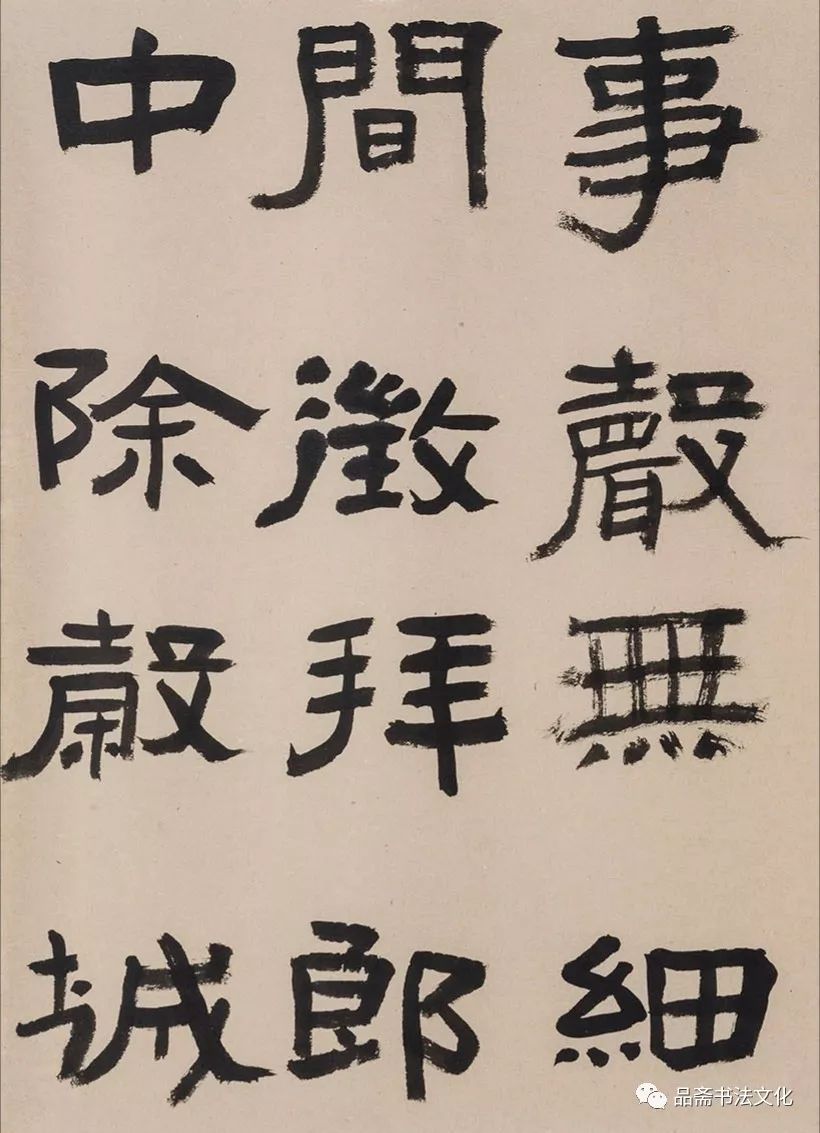 事聲無細
間徵拜郎
中除穀城
品斋书法文化